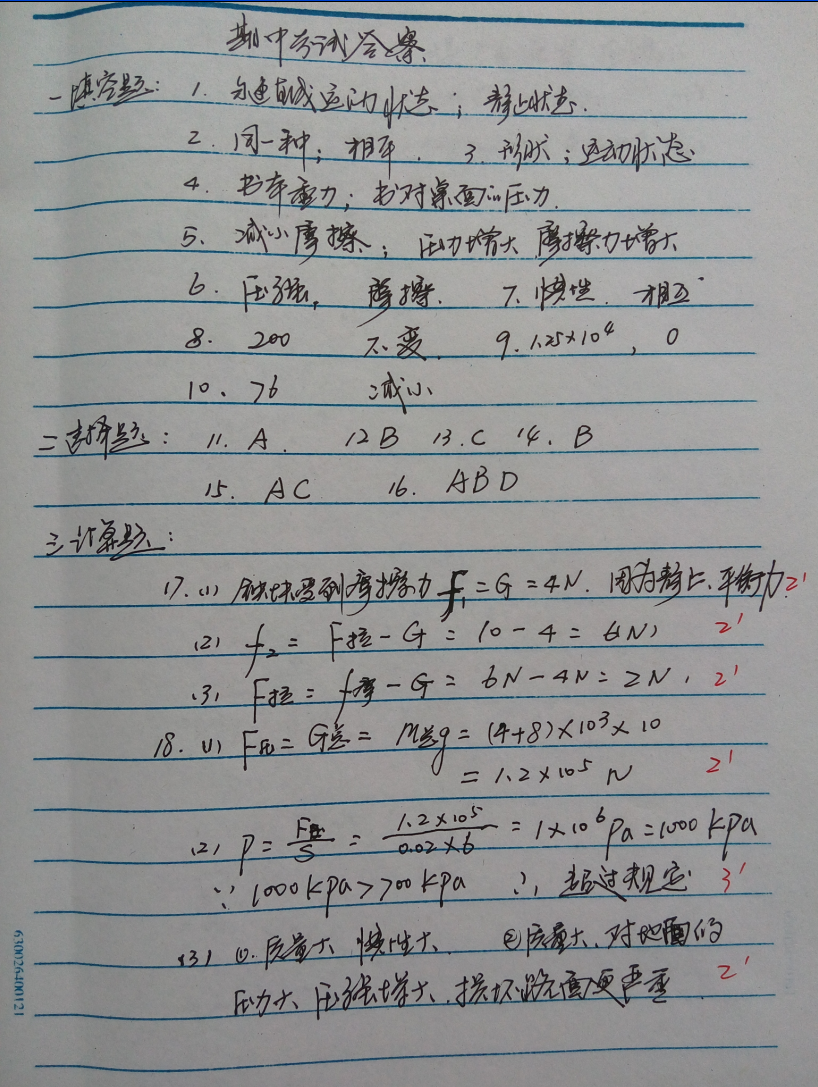 期中考试答案
一填空题: 1. 匀速直线运动状态; 静止状态.
2. 同一种; 相平. 3. 形状; 运动状态
4. 书本重力; 书对桌面的压力.
5. 减小摩擦; 压力增大 摩擦力增大
6. 压强, 摩擦. 7. 惯性. 相互
8. 200 不变. 9. 1.25×10⁴, 0
10. 76 减小
二选择题: 11. A. 12 B 13. C 14. B
15. AC 16. ABD
三计算题:
17. (1) 铁块受到摩擦力 f₁=G=4N. 因为静止、平衡力. 2'
(2) f₂ = F拉-G = 10-4=6N) 2'
(3) F拉 = f摩-G = 6N-4N=2N. 2'
18. (1) F压= G总= m总g = (4+8)×10³×10
= 1.2×10⁵ N 2'
(2) P = F压/S = 1.2×10⁵/0.02×6 = 1×10⁶ Pa=1000 kpa
∵ 1000 kpa>700 kpa ∴, 超过规定 3'
(3) ①. 质量大 惯性大. ②质量大、对地面的
压力大、压强增大、损坏路面更严重 2'
630026400121